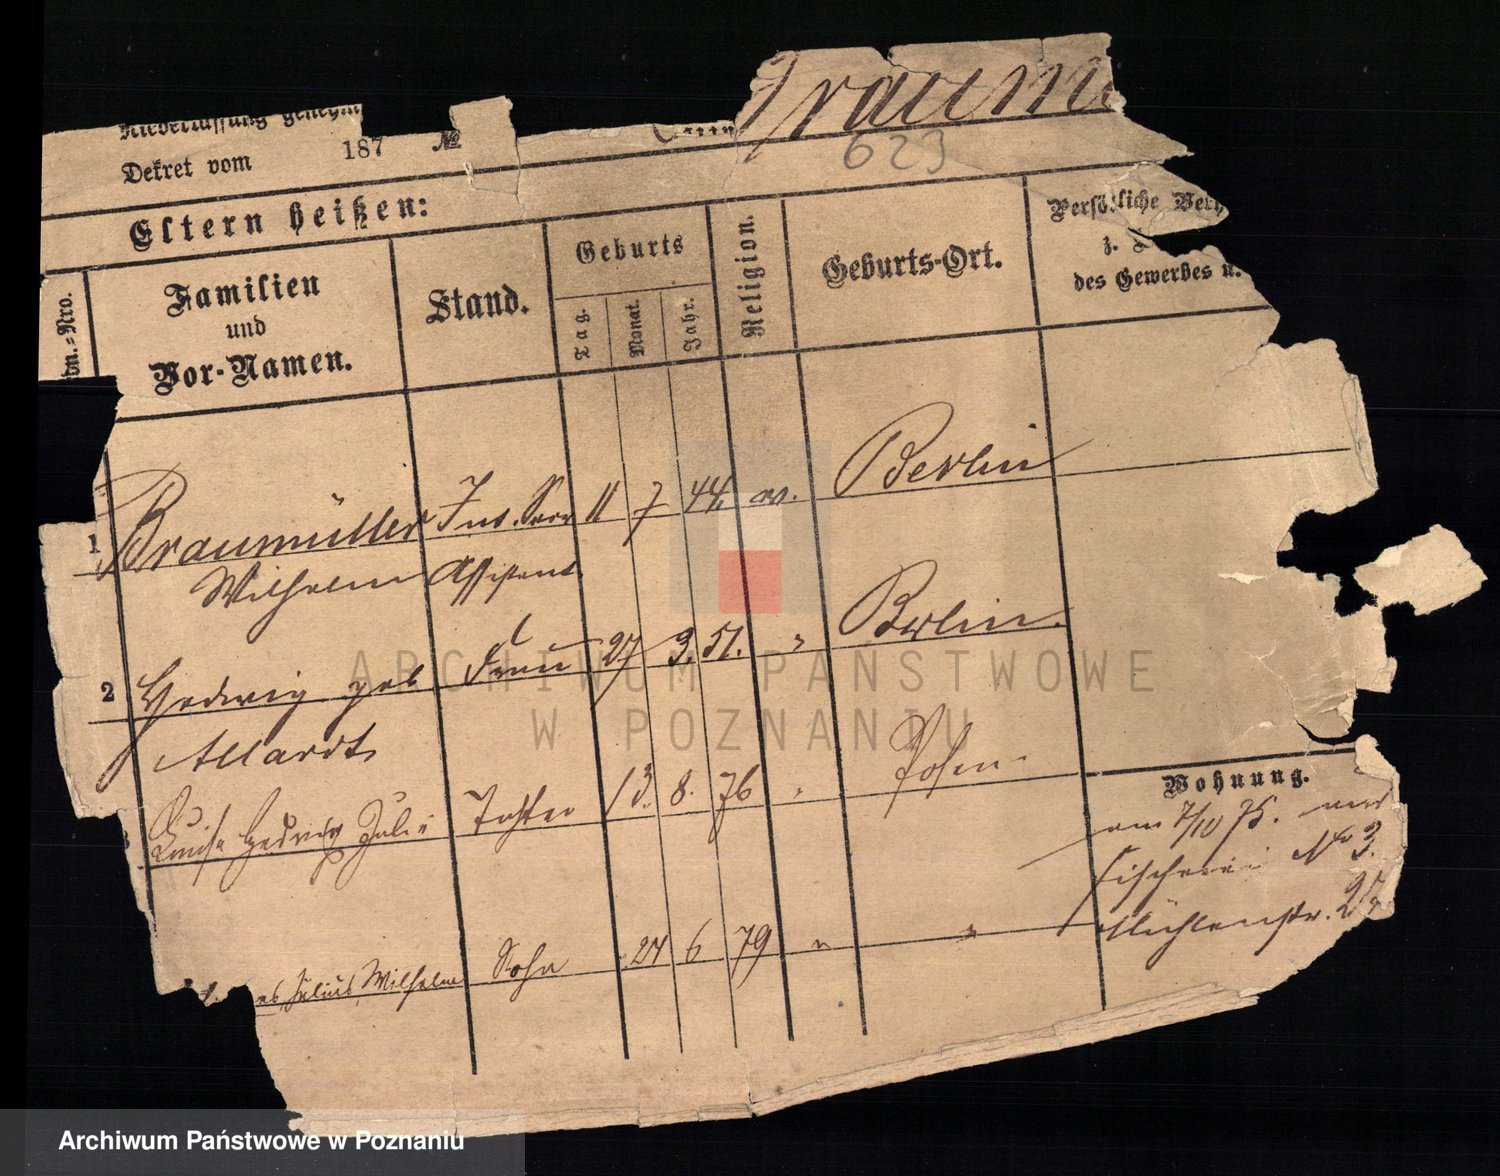 Niederlassung geneh
Dekret vom 187 №
Braum
623
Eltern heißen:
Nro.
Familien
und
Vor-Namen.
Stand.
Geburts
Tag.
Monat.
Jahr.
Religion.
Geburts-Ort.
Persönliche Ver
z.
des Gewerbes u.
1 Braumüller Int. Secr 11 7 44. ev. Berlin
Wilhelm Assistent
2 Hedwig geb Frau 27 3. 51. " Berlin.
Allardt
Luise Hedwig Julie Tochter 13. 8. 76 " Posen.
Julius, Wilhelm Sohn 24 6 79 " "
Wohnung.
am 7/10 75.
Fischerei No 3.
Mühlenstr.
ARCHIWUM PAŃSTWOWE
W POZNANIU
Archiwum Państwowe w Poznaniu